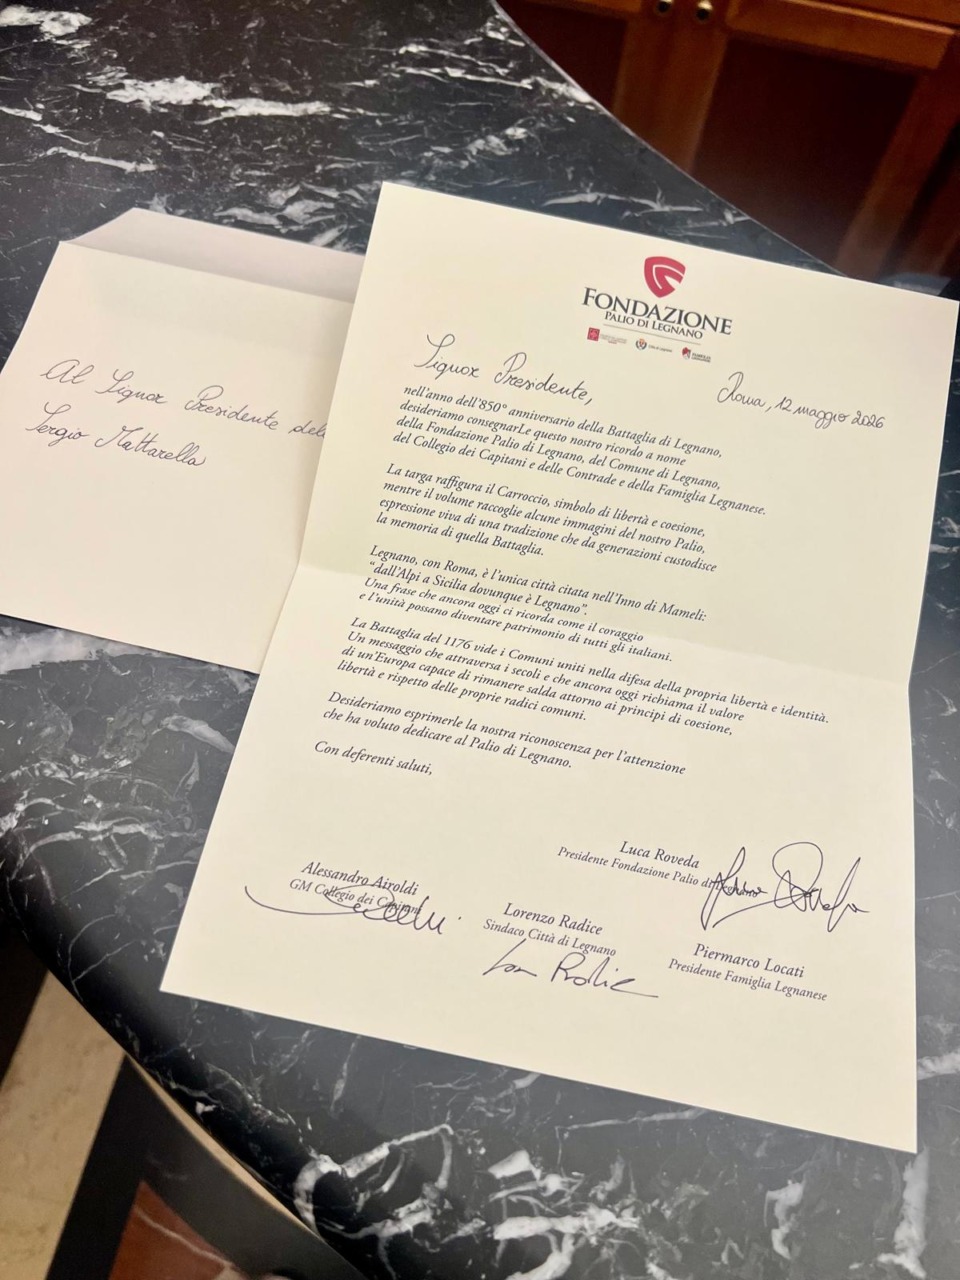 Al Signor Presidente
Sergio Mattarella
FONDAZIONE
PALIO DI LEGNANO
Signor Presidente,
Roma, 12 maggio 2026
nell'anno dell'850° anniversario della Battaglia di Legnano,
desideriamo consegnarLe questo nostro ricordo a nome
della Fondazione Palio di Legnano, del Comune di Legnano,
del Collegio dei Capitani e delle Contrade e della Famiglia Legnanese.
La targa raffigura il Carroccio, simbolo di libertà e coesione,
mentre il volume raccoglie alcune immagini del nostro Palio,
espressione viva di una tradizione che da generazioni custodisce
la memoria di quella Battaglia.
Legnano, con Roma, è l'unica città citata nell'Inno di Mameli:
"dall'Alpi a Sicilia dovunque è Legnano".
Una frase che ancora oggi ci ricorda come il coraggio
e l'unità possano diventare patrimonio di tutti gli italiani.
La Battaglia del 1176 vide i Comuni uniti nella difesa della propria libertà e identità.
Un messaggio che attraversa i secoli e che ancora oggi richiama il valore
di un'Europa capace di rimanere salda attorno ai principi di coesione,
libertà e rispetto delle proprie radici comuni.
Desideriamo esprimerle la nostra riconoscenza per l'attenzione
che ha voluto dedicare al Palio di Legnano.
Con deferenti saluti,
Luca Roveda
Presidente Fondazione Palio di
Alessandro Airoldi
GM Collegio dei Capitani
Lorenzo Radice
Sindaco Città di Legnano
Piermarco Locati
Presidente Famiglia Legnanese